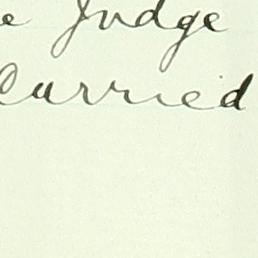 e Judge
Carried